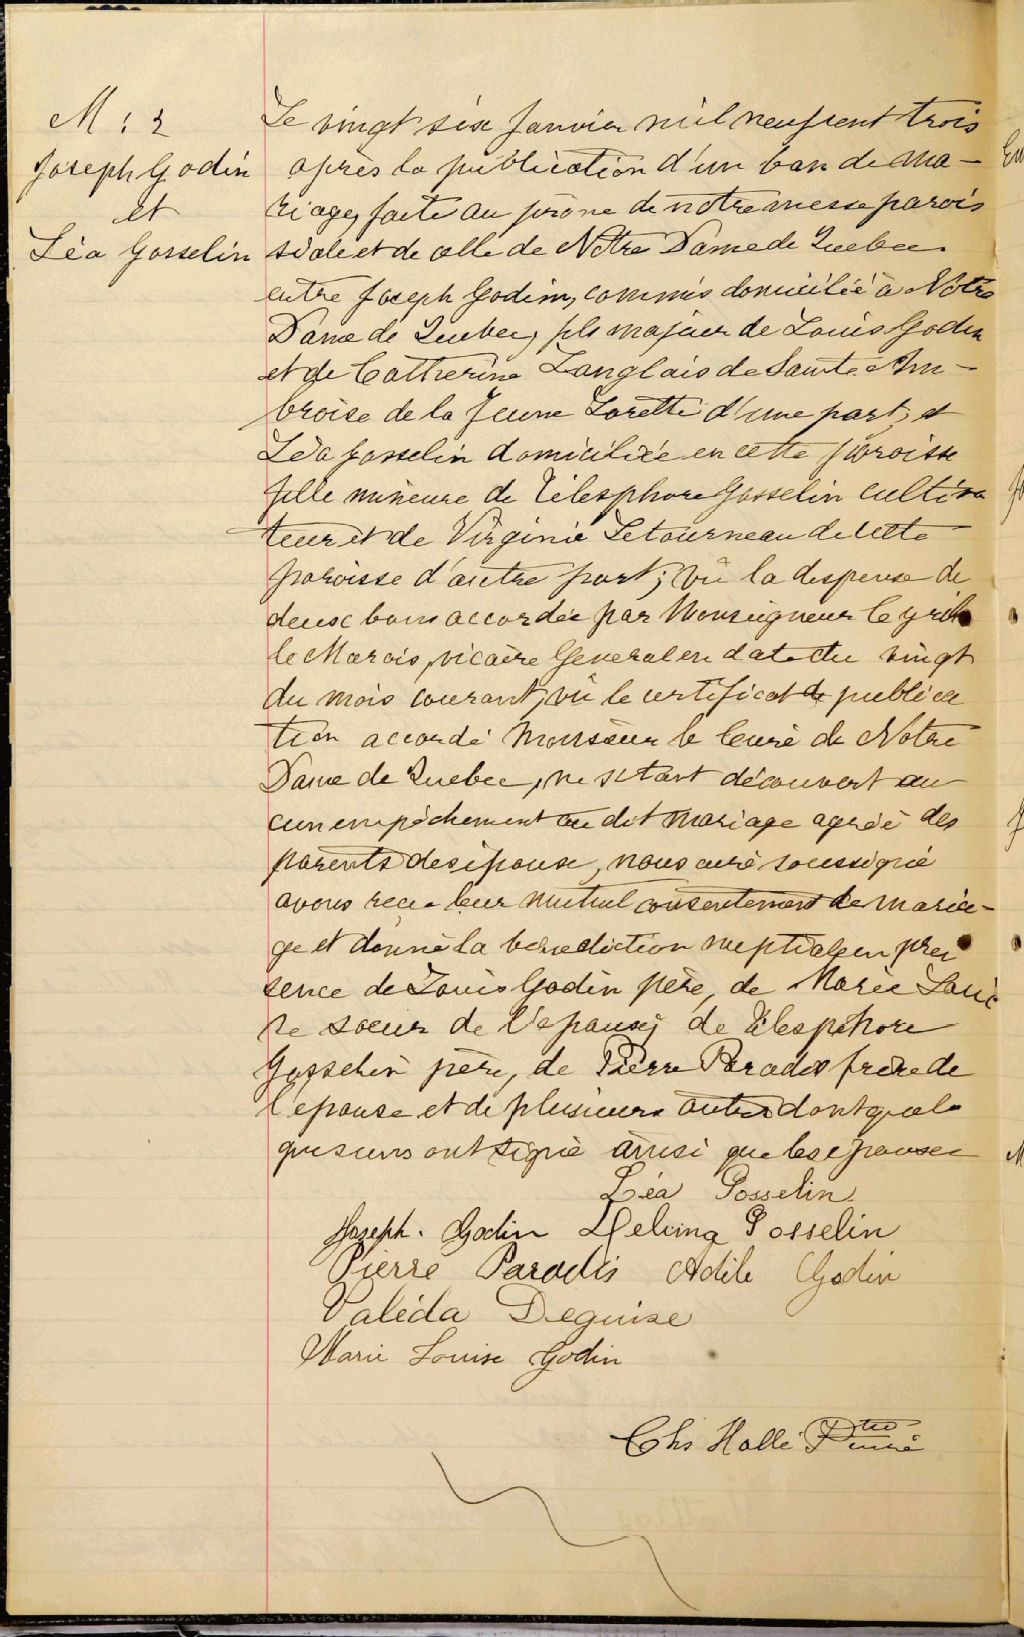 M : 2
Joseph Godin
et
Léa Gosselin
Le vingt six Janvier mil neuf cent trois
après la publication d'un ban de ma-
riage, faite au prône de notre messe parois
siale et de celle de Notre Dame de Quebec
entre Joseph Godin, commis domicilié à Notre
Dame de Quebec, fils majeur de Louis Godin
et de Catherine Langlais de Sainte Am-
broise de la Jeune Lorette d'une part, et
Léa Gosselin domiciliée en cette paroisse
fille mineure de Télesphore Gosselin cultiva
teur et de Virginie Letourneau de cette
paroisse d'autre part; vû la dispense de
deux bans accordée par Monseigneur
le Marois, vicaire General en date du vingt
du mois courant, vû le certificat de publica
tion accordé Monsieur le Curé de Notre
Dame de Quebec, ne s'etant découvert au
cun empêchement au dit mariage agréé des
parents des épouse, nous curé soussigné
avons reçu leur mutuel consentement de maria-
ge et donné la benediction nuptiale en pre
sence de Louis Godin père, de Marie Loui
se soeur de l'epouse, de Télesphore
Gosselin père, de Pierre Paradis frère de
l'epouse et de plusieurs autres dont quel
ques uns ont signé ainsi que les epouse
Léa Gosselin
Joseph. Godin Delima Gosselin
Pierre Paradis Adile Godin
Valéda Deguise
Marie Louise Godin
Chs Hallé Ptre Curé